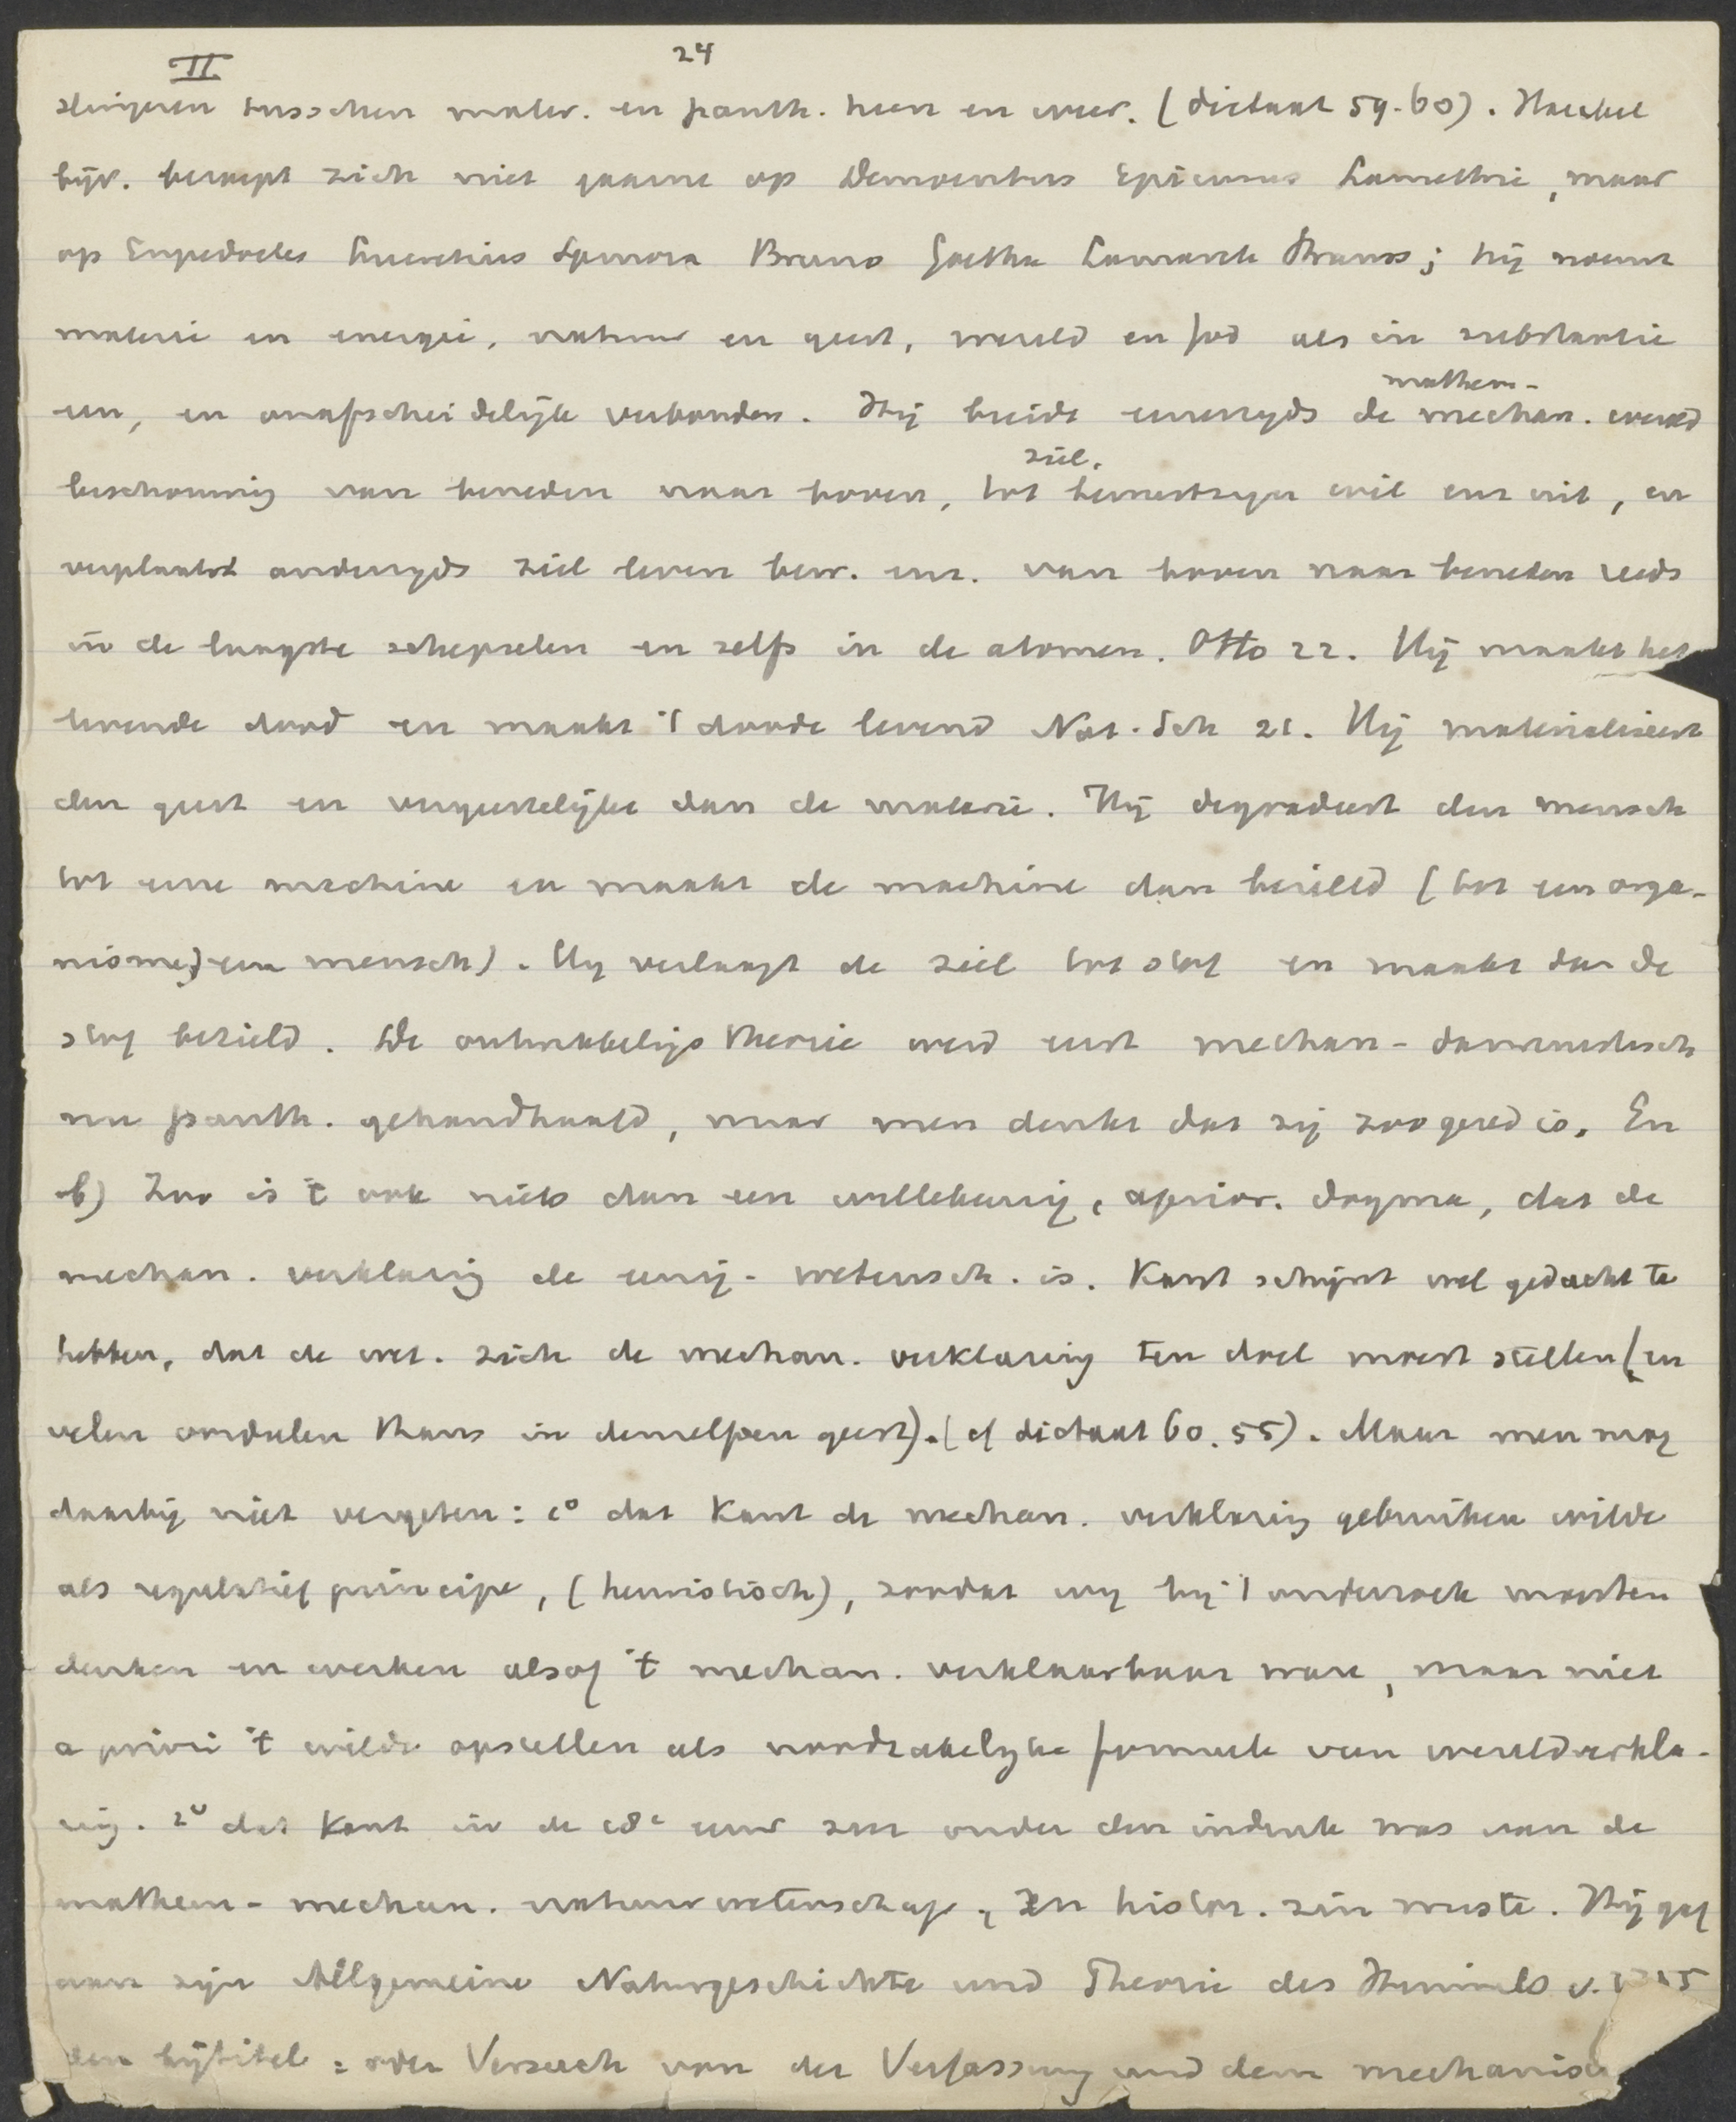 II
24
slingeren tusschen mater. en panth. heen en weer. (dictaat 59-60). Haeckel
bijv. beroept zich niet gaarne op Democritus Epicurus Lamettrie, maar
op Empedocles Lucretius Spinoza Bruno Goethe Lamarck Strauss; hij noemt
materie en energie, natuur en geest, wereld en God als in substantie
een, en onafscheidelijk verbonden. Hij breidt eenerzyds de mechan. wereld
mathem-
beschouwing van beneden naar boven, tot bewustzyn wil enz uit, en
ziel.
verplaatst anderzyds ziel leven bew. enz. van boven naar beneden reeds
in de laagste schepselen en zelfs in de atomen. Otto 22. Hij maakt het
levende dood en maakt 't doode levend Nat. Sch 21. Hij materialiseert
den geest en vergeestelijkt dan de materie. Hij degradeert den mensch
tot eene machine en maakt de machine dan bezield (tot een orga-
nisme, een mensch). Hy verlaagt de ziel tot stof en maakt dan de
stof bezield. De ontwikkelings theorie werd eerst mechan-darwinistisch
nu panth. gehandhaafd, maar men denkt dat zij zoo gered is. En
b) Zoo is 't ook niets dan een willekeurig, aprior. dogma, dat de
mechan. verklaring de eenig-wetensch. is. Kant schijnt wel gedacht te
hebben, dat de wet. zich de mechan. verklaring ten doel moest stellen (en
velen oordeelen thans in denzelfden geest). (cf dictaat 60. 55). Maar men mag
daarbij niet vergeten: 1° dat Kant de mechan. verklaring gebruiken wilde
als regulatief principe, (heuristisch), zoodat wy bij 't onderzoek moesten
denken en werken alsof 't mechan. verklaarbaar ware, maar niet
a priori 't wilde opstellen als noodzakelyke formule van wereldverkla-
ring. 2° dat Kant in de 18e eeuw zeer onder den indruk was van de
mathem-mechan. natuurwetenschap, en histor. zin miste. Hij gaf
aan zijn Allgemeine Naturgeschichte und Theorie des Himmels v.
den bijtitel: oder Versuch von der Verfassung und dem mechanisch